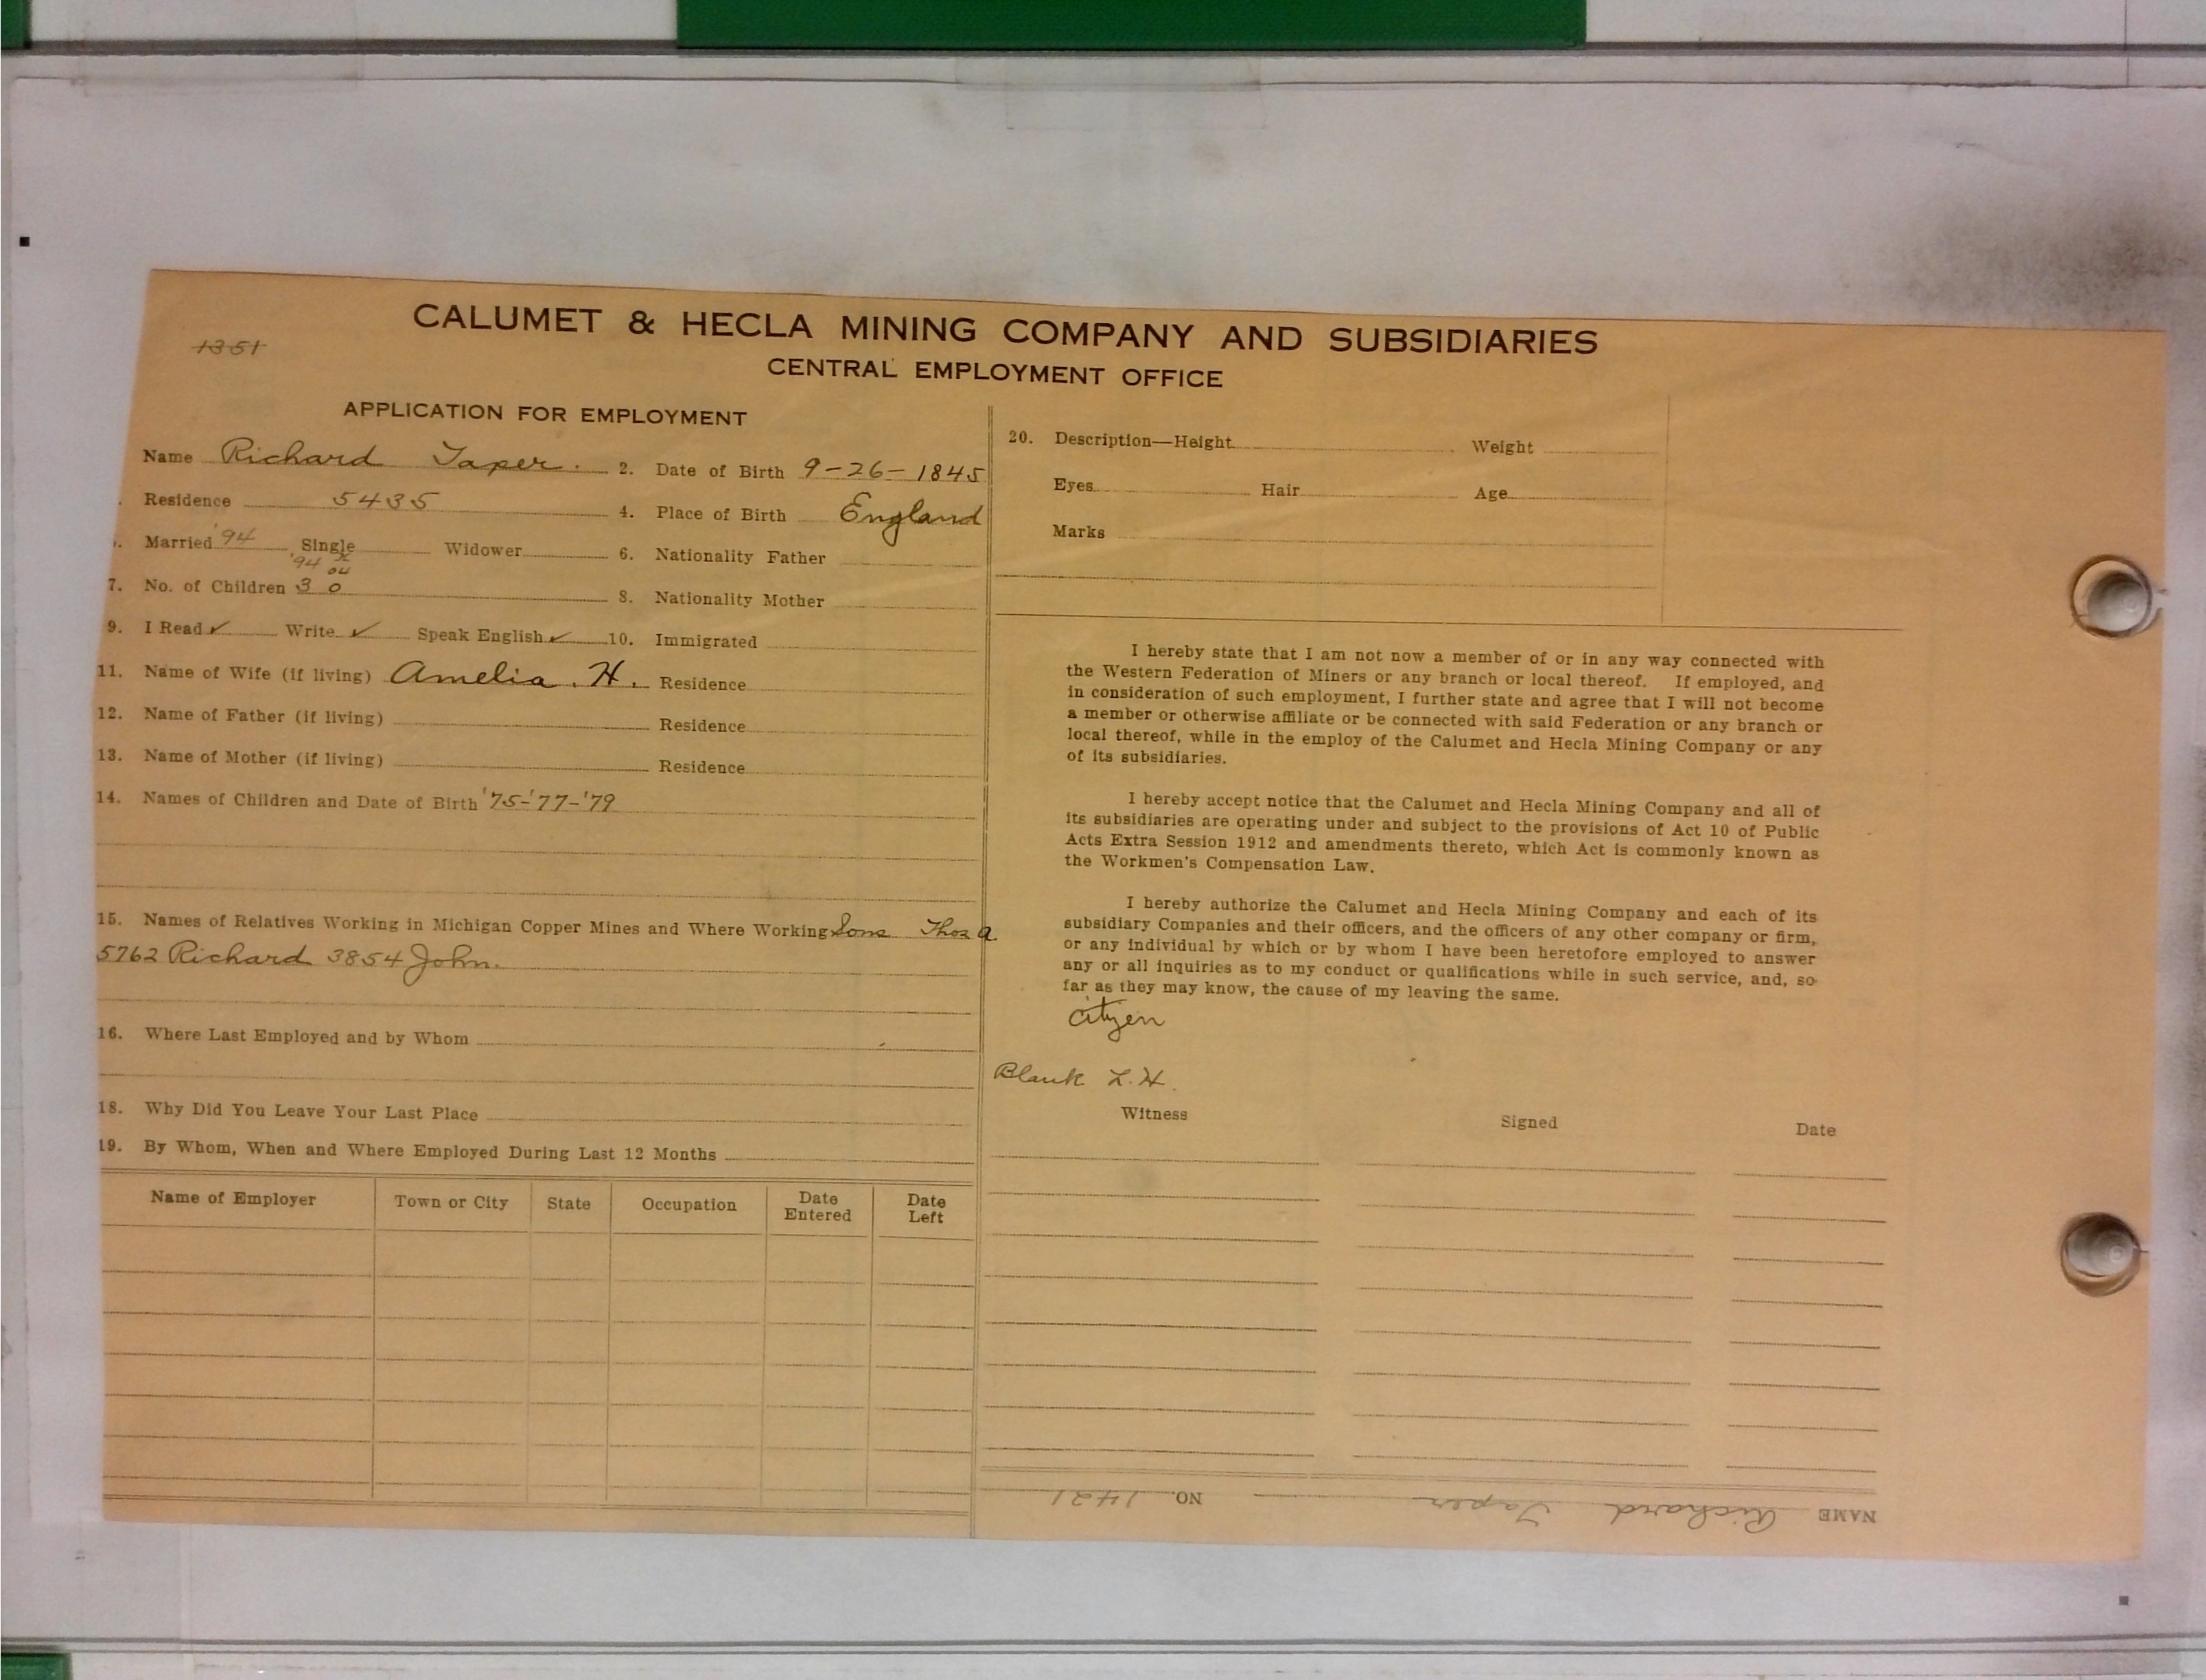 CALUMET & HECLA MINING COMPANY AND SUBSIDIARIES
1351
CENTRAL EMPLOYMENT OFFICE
APPLICATION FOR EMPLOYMENT
Name Richard Taper. 2. Date of Birth 9-26-1845
Residence 5435 4. Place of Birth England
Married '94 Single Widower 6. Nationality Father
'94 04
7. No. of Children 3 0 8. Nationality Mother
9. I Read ✓ Write ✓ Speak English ✓ 10. Immigrated
11. Name of Wife (if living) Amelia. H. Residence
12. Name of Father (if living) Residence
13. Name of Mother (if living) Residence
14. Names of Children and Date of Birth '75-'77-'79
15. Names of Relatives Working in Michigan Copper Mines and Where Working Sons Thos a
5762 Richard 3854 John.
16. Where Last Employed and by Whom
18. Why Did You Leave Your Last Place
19. By Whom, When and Where Employed During Last 12 Months
Name of Employer Town or City State Occupation Date Entered Date Left
20. Description—Height Weight
Eyes Hair Age
Marks
I hereby state that I am not now a member of or in any way connected with
the Western Federation of Miners or any branch or local thereof. If employed, and
in consideration of such employment, I further state and agree that I will not become
a member or otherwise affiliate or be connected with said Federation or any branch or
local thereof, while in the employ of the Calumet and Hecla Mining Company or any
of its subsidiaries.
I hereby accept notice that the Calumet and Hecla Mining Company and all of
its subsidiaries are operating under and subject to the provisions of Act 10 of Public
Acts Extra Session 1912 and amendments thereto, which Act is commonly known as
the Workmen's Compensation Law.
I hereby authorize the Calumet and Hecla Mining Company and each of its
subsidiary Companies and their officers, and the officers of any other company or firm,
or any individual by which or by whom I have been heretofore employed to answer
any or all inquiries as to my conduct or qualifications while in such service, and, so
far as they may know, the cause of my leaving the same.
Citizen
Blank L.H.
Witness Signed Date
NAME Richard Taper NO. 1421